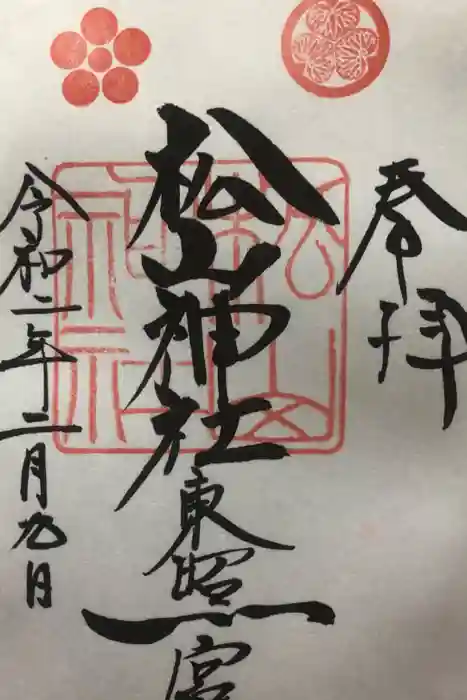 奉拝
松山神社
東照宮
令和二年二月九日
松山神社